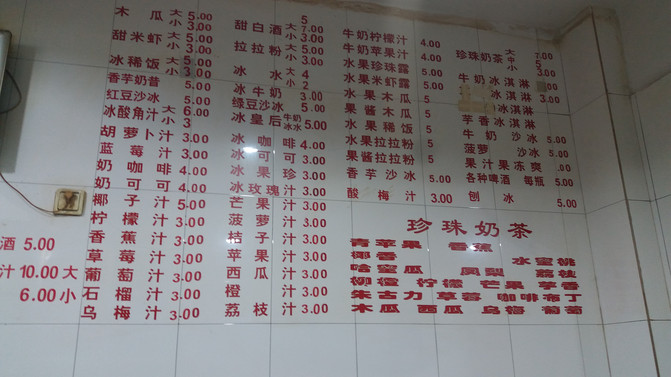 木瓜 大 5.00
小 3.00
甜米虾 大 5.00
小 3.00
冰稀饭 大 5.00
小 3.00
香芋奶昔 5.00
红豆沙冰 5.00
冰酸角汁 大 6.00
小 3
胡萝卜汁 3.00
蓝莓汁 3.00
奶咖啡 4.00
奶可可 4.00
椰子汁 5.00
柠檬汁 3.00
香蕉汁 3.00
草莓汁 3.00
葡萄汁 3.00
石榴汁 3.00
乌梅汁 3.00
酒 5.00
汁 10.00 大
6.00 小
5
甜白酒 大 7.00
小 3.00
拉拉粉 大 5.00
小 3.00
冰水 大 4
小 2
冰牛奶 3.00
绿豆沙冰 5.00
冰皇后 牛奶 冰水 5.00
冰咖啡 4.00
冰可可 3.00
冰果珍 3.00
冰玫瑰汁 3.00
芒果汁 3.00
菠萝汁 3.00
桔子汁 3.00
苹果汁 3.00
西瓜汁 3.00
橙汁 3.00
荔枝汁 3.00
牛奶柠檬汁 4.00
牛奶苹果汁 4.00
水果珍珠露 5
水果米虾露 5
水果木瓜 5
果酱木瓜 5
水果稀饭 5
水果拉拉粉 5
果酱拉拉粉 5
香芋沙冰 5.00
酸梅汁 3.00
珍珠奶茶 大 7.00
中 5
小 3.00
牛奶冰淇淋
冰淇淋
冰淇淋
芋香冰淇淋
牛奶沙冰 5.00
菠萝沙冰 5.00
果汁果冻爽 5.00
各种啤酒 每瓶 5.00
刨冰 5.00
珍珠奶茶
青苹果 香蕉
椰香 水蜜桃
哈密瓜 凤梨 荔枝
柳橙 柠檬 芒果 芋香
朱古力 草莓 咖啡布丁
木瓜 西瓜 乌梅 葡萄